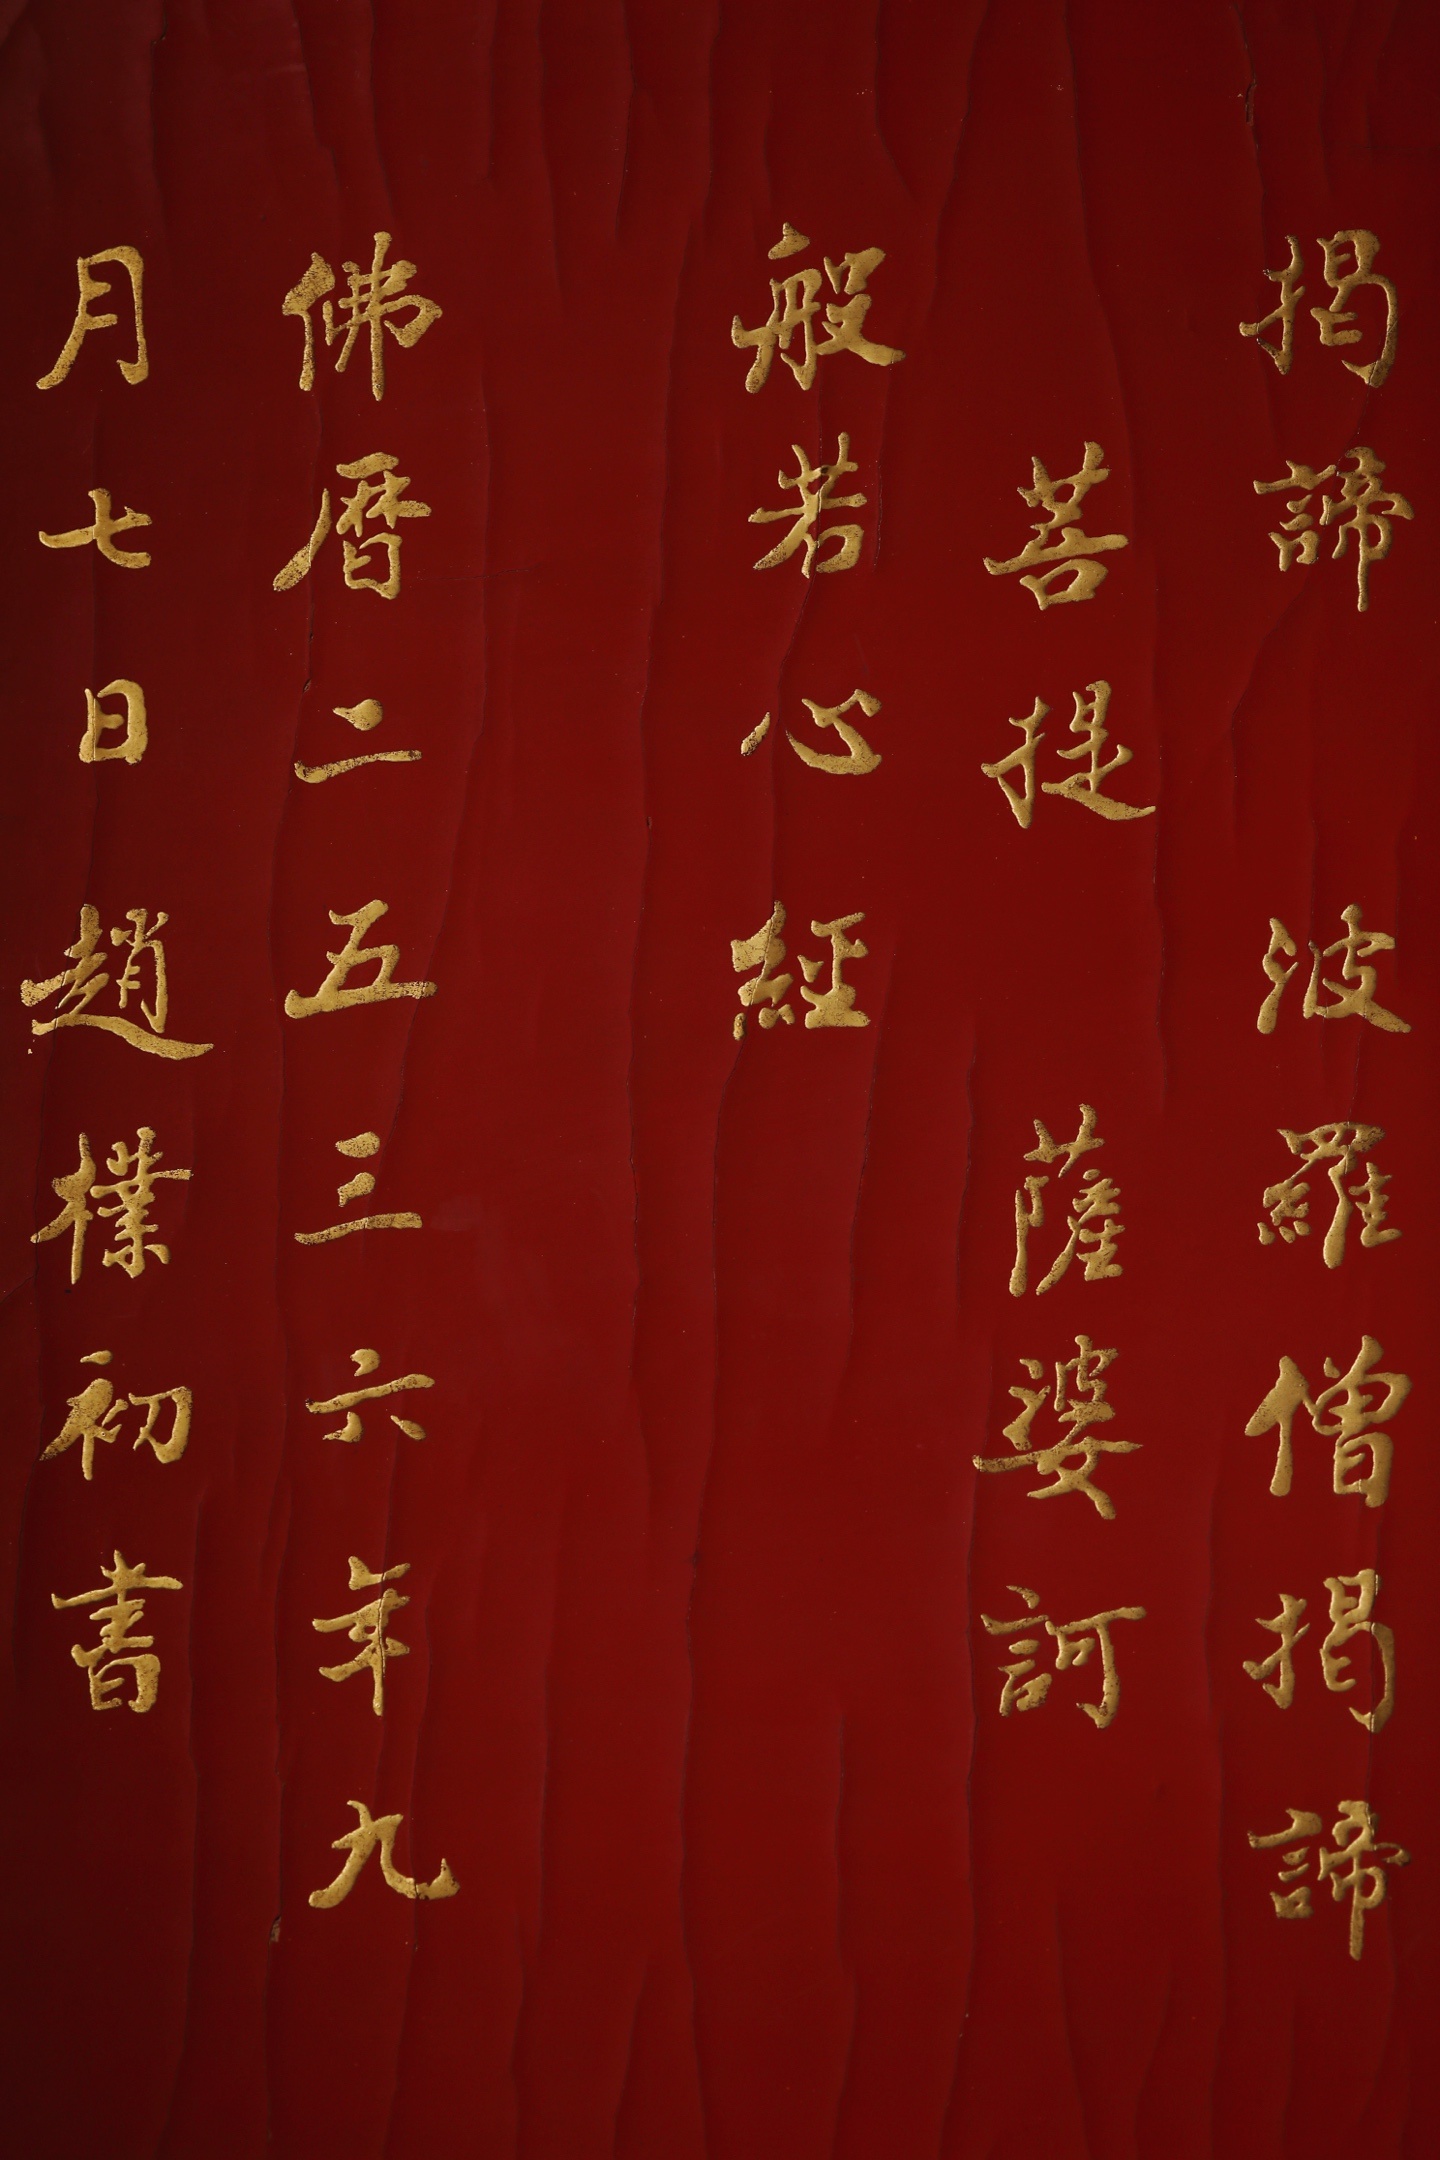 揭諦　波羅僧揭諦
菩提　薩婆訶
般若心經
佛曆二五三六年九
月七日趙樸初書